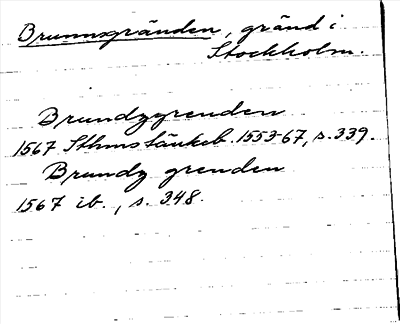 Brunnsgränden, gränd i
Stockholm.
Brundzgrenden
1567 Sthms tänkeb. 1553-67, s. 339.
Brundz grenden
1567 ib., s. 348.